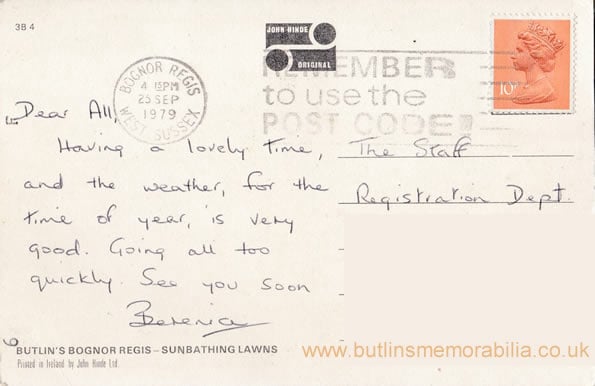 3B 4
JOHN HINDE
ORIGINAL
BOGNOR REGIS
4 15PM
25 SEP
1979
WEST SUSSEX
REMEMBER
to use the
POST CODE
10P
Dear All,
Having a lovely time,
and the weather, for the
time of year, is very
good. Going all too
quickly. See you soon
Berenice
The Staff
Registration Dept.
BUTLIN'S BOGNOR REGIS – SUNBATHING LAWNS
Printed in Ireland by John Hinde Ltd.
www.butlinsmemorabilia.co.uk